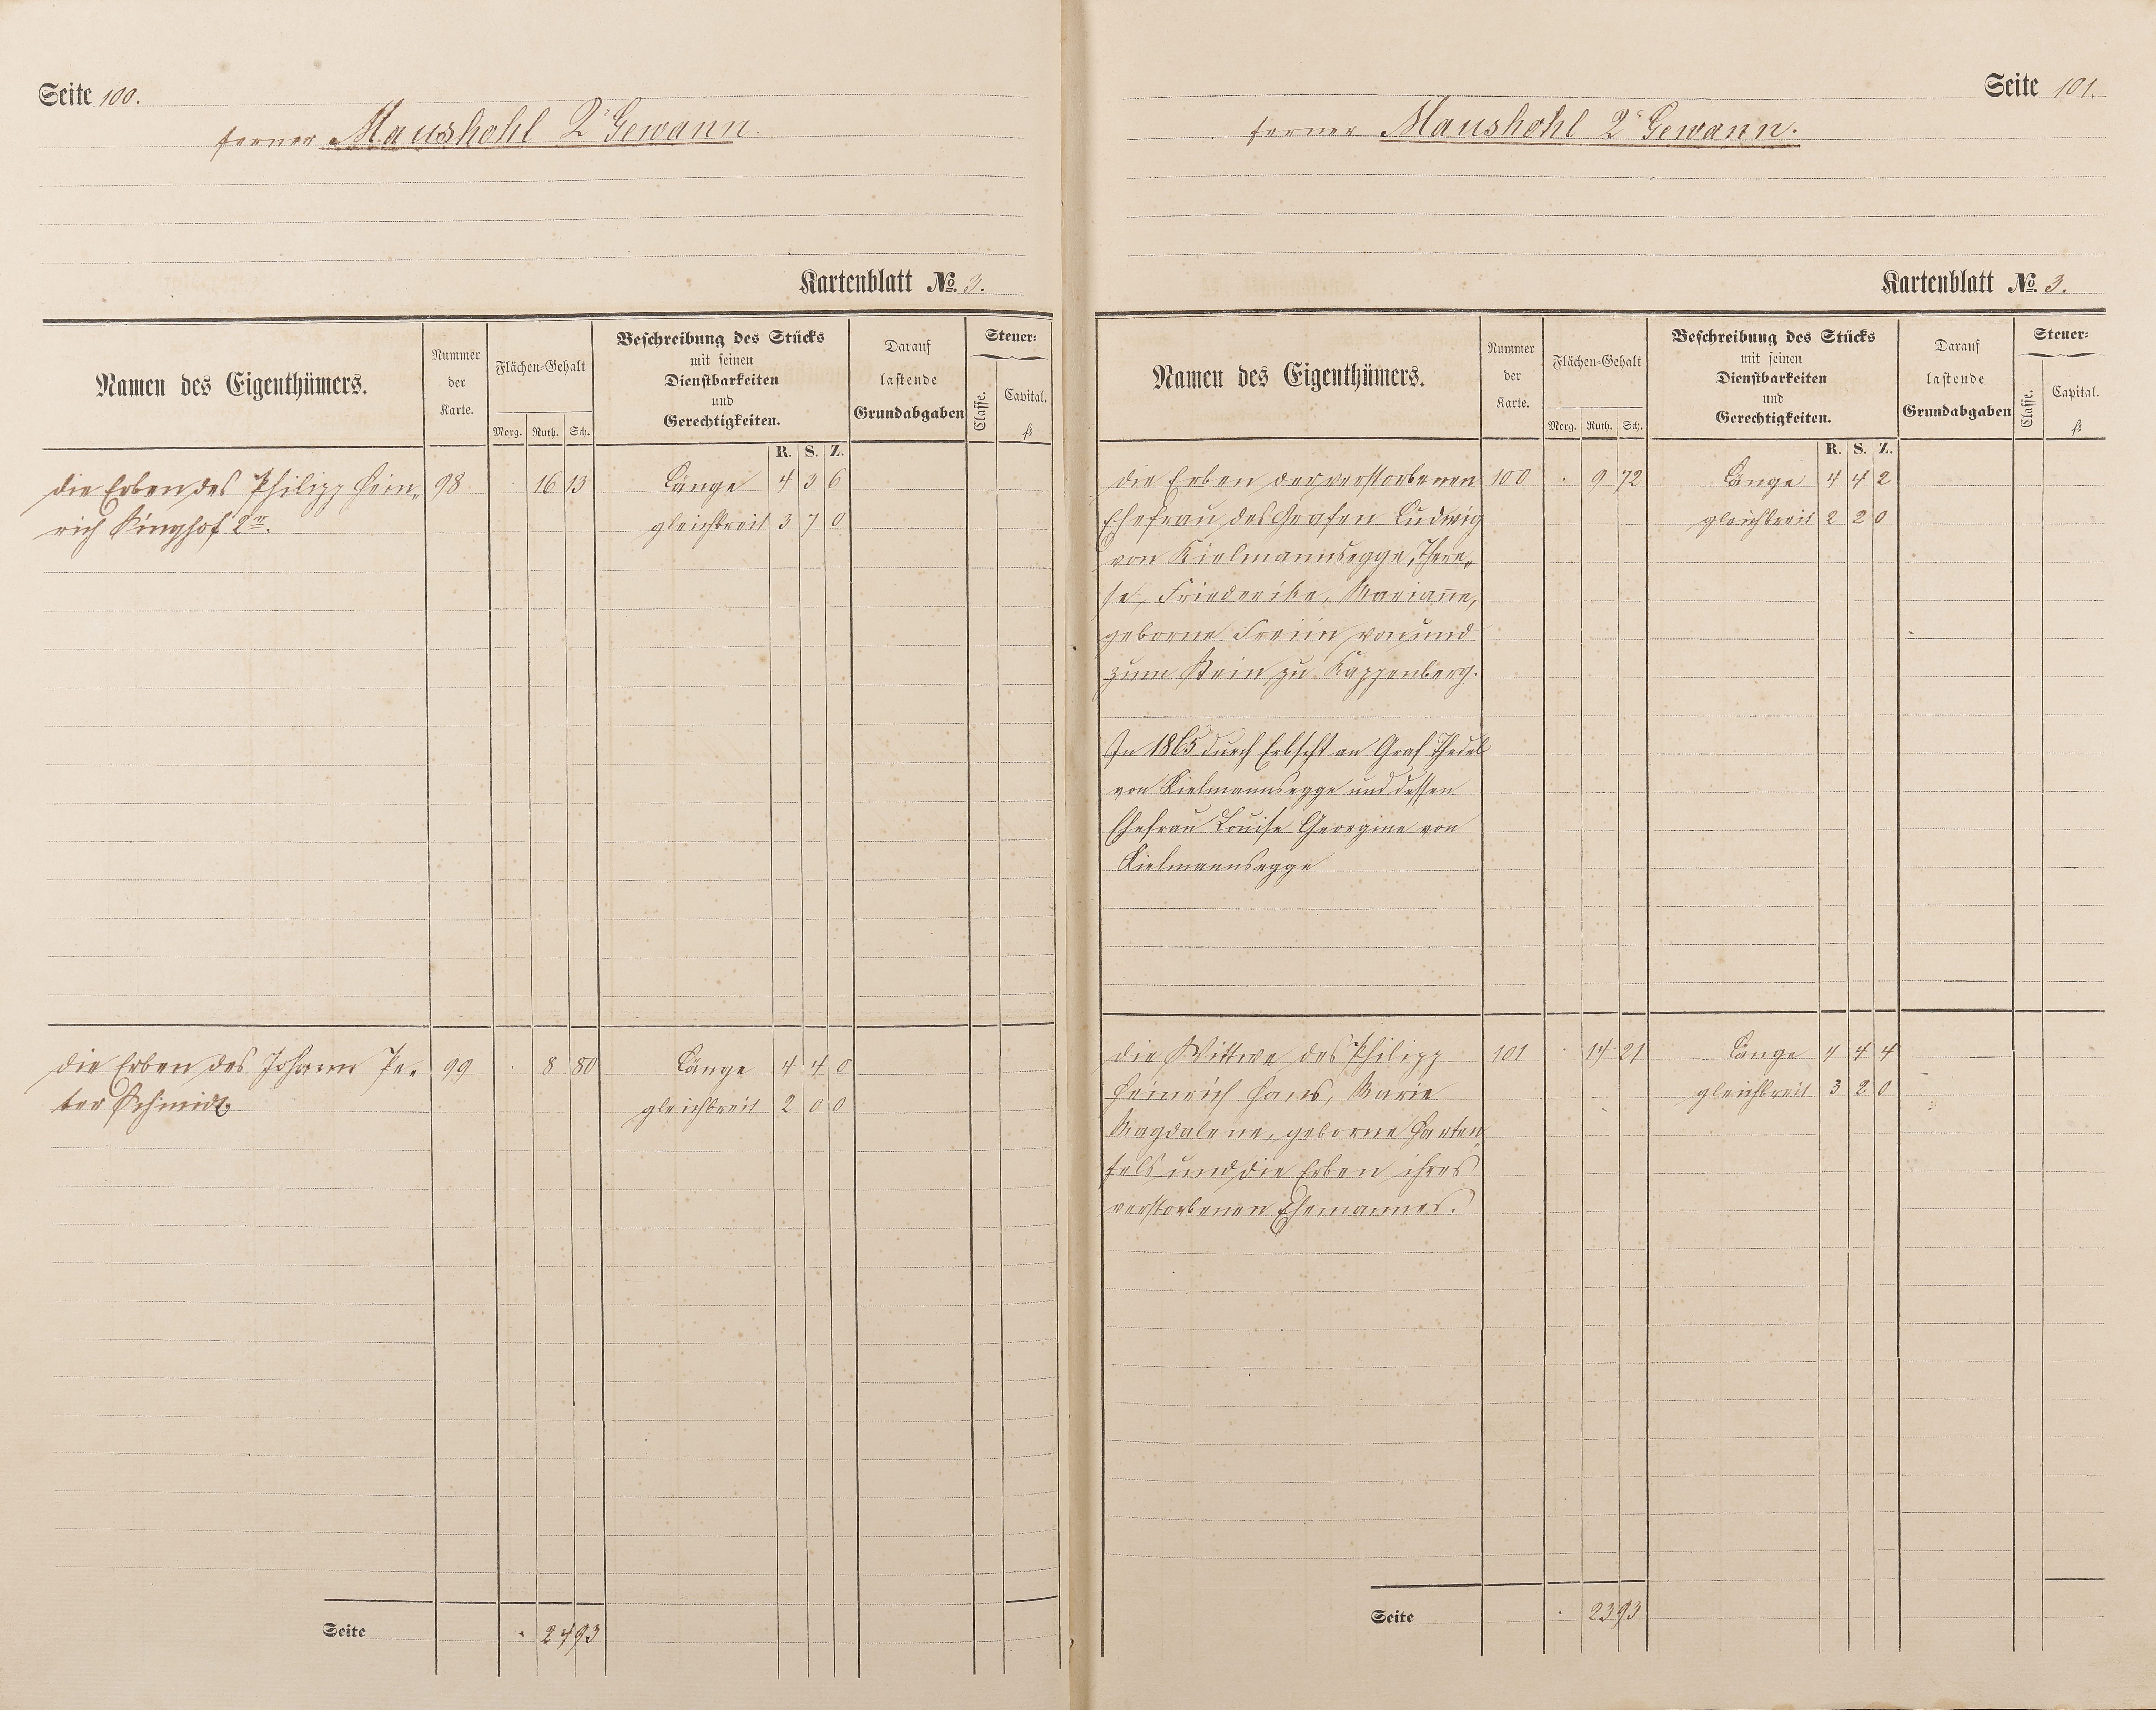 Seite 100.
ferner Maushohl 2te Gewann.
Kartenblatt No. 3.
Namen des Eigenthümers.
Nummer der Karte.
Flächen-Gehalt
Morg. Ruth. Sch.
Beschreibung des Stücks
mit seinen
Dienstbarkeiten
und
Gerechtigkeiten.
Darauf
lastende
Grundabgaben
Steuer-
Classe.
Capital.
fl.
R. S. Z.
die Erben des Philipp Hein- 98 . 16 13 Länge 4 3 6
rich Kinghof 2r. gleichbreit 3 7 0
die Erben des Johann Pe- 99 . 8 80 Länge 4 4 0
ter Schmidt. gleichbreit 2 0 0
Seite . 24 93
Seite 101.
ferner Maushohl 2te Gewann.
Kartenblatt No. 3.
Namen des Eigenthümers.
Nummer der Karte.
Flächen-Gehalt
Morg. Ruth. Sch.
Beschreibung des Stücks
mit seinen
Dienstbarkeiten
und
Gerechtigkeiten.
Darauf
lastende
Grundabgaben
Steuer-
Classe.
Capital.
fl.
R. S. Z.
die Erben der verstorbenen 100 . 9 72 Länge 4 4 2
Ehefrau des Grafen Ludwig gleichbreit 2 2 0
von Kielmannsegge, There-
se, Friederike, Marianne,
geborne Freiin von und
zum Stein zu Kappenberg.
In 1865 durch Erbscht an Graf Thedel
von Kielmannsegge und dessen
Ehefrau Louise Georgine von
Kielmannsegge
die Wittwe des Philipp 101 . 14 21 Länge 4 4 4
Heinrich Hans, Marie gleichbreit 3 2 0
Magdalene, geborne Harten-
fels und die Erben ihres
verstorbenen Ehemannes.
Seite . 23 93